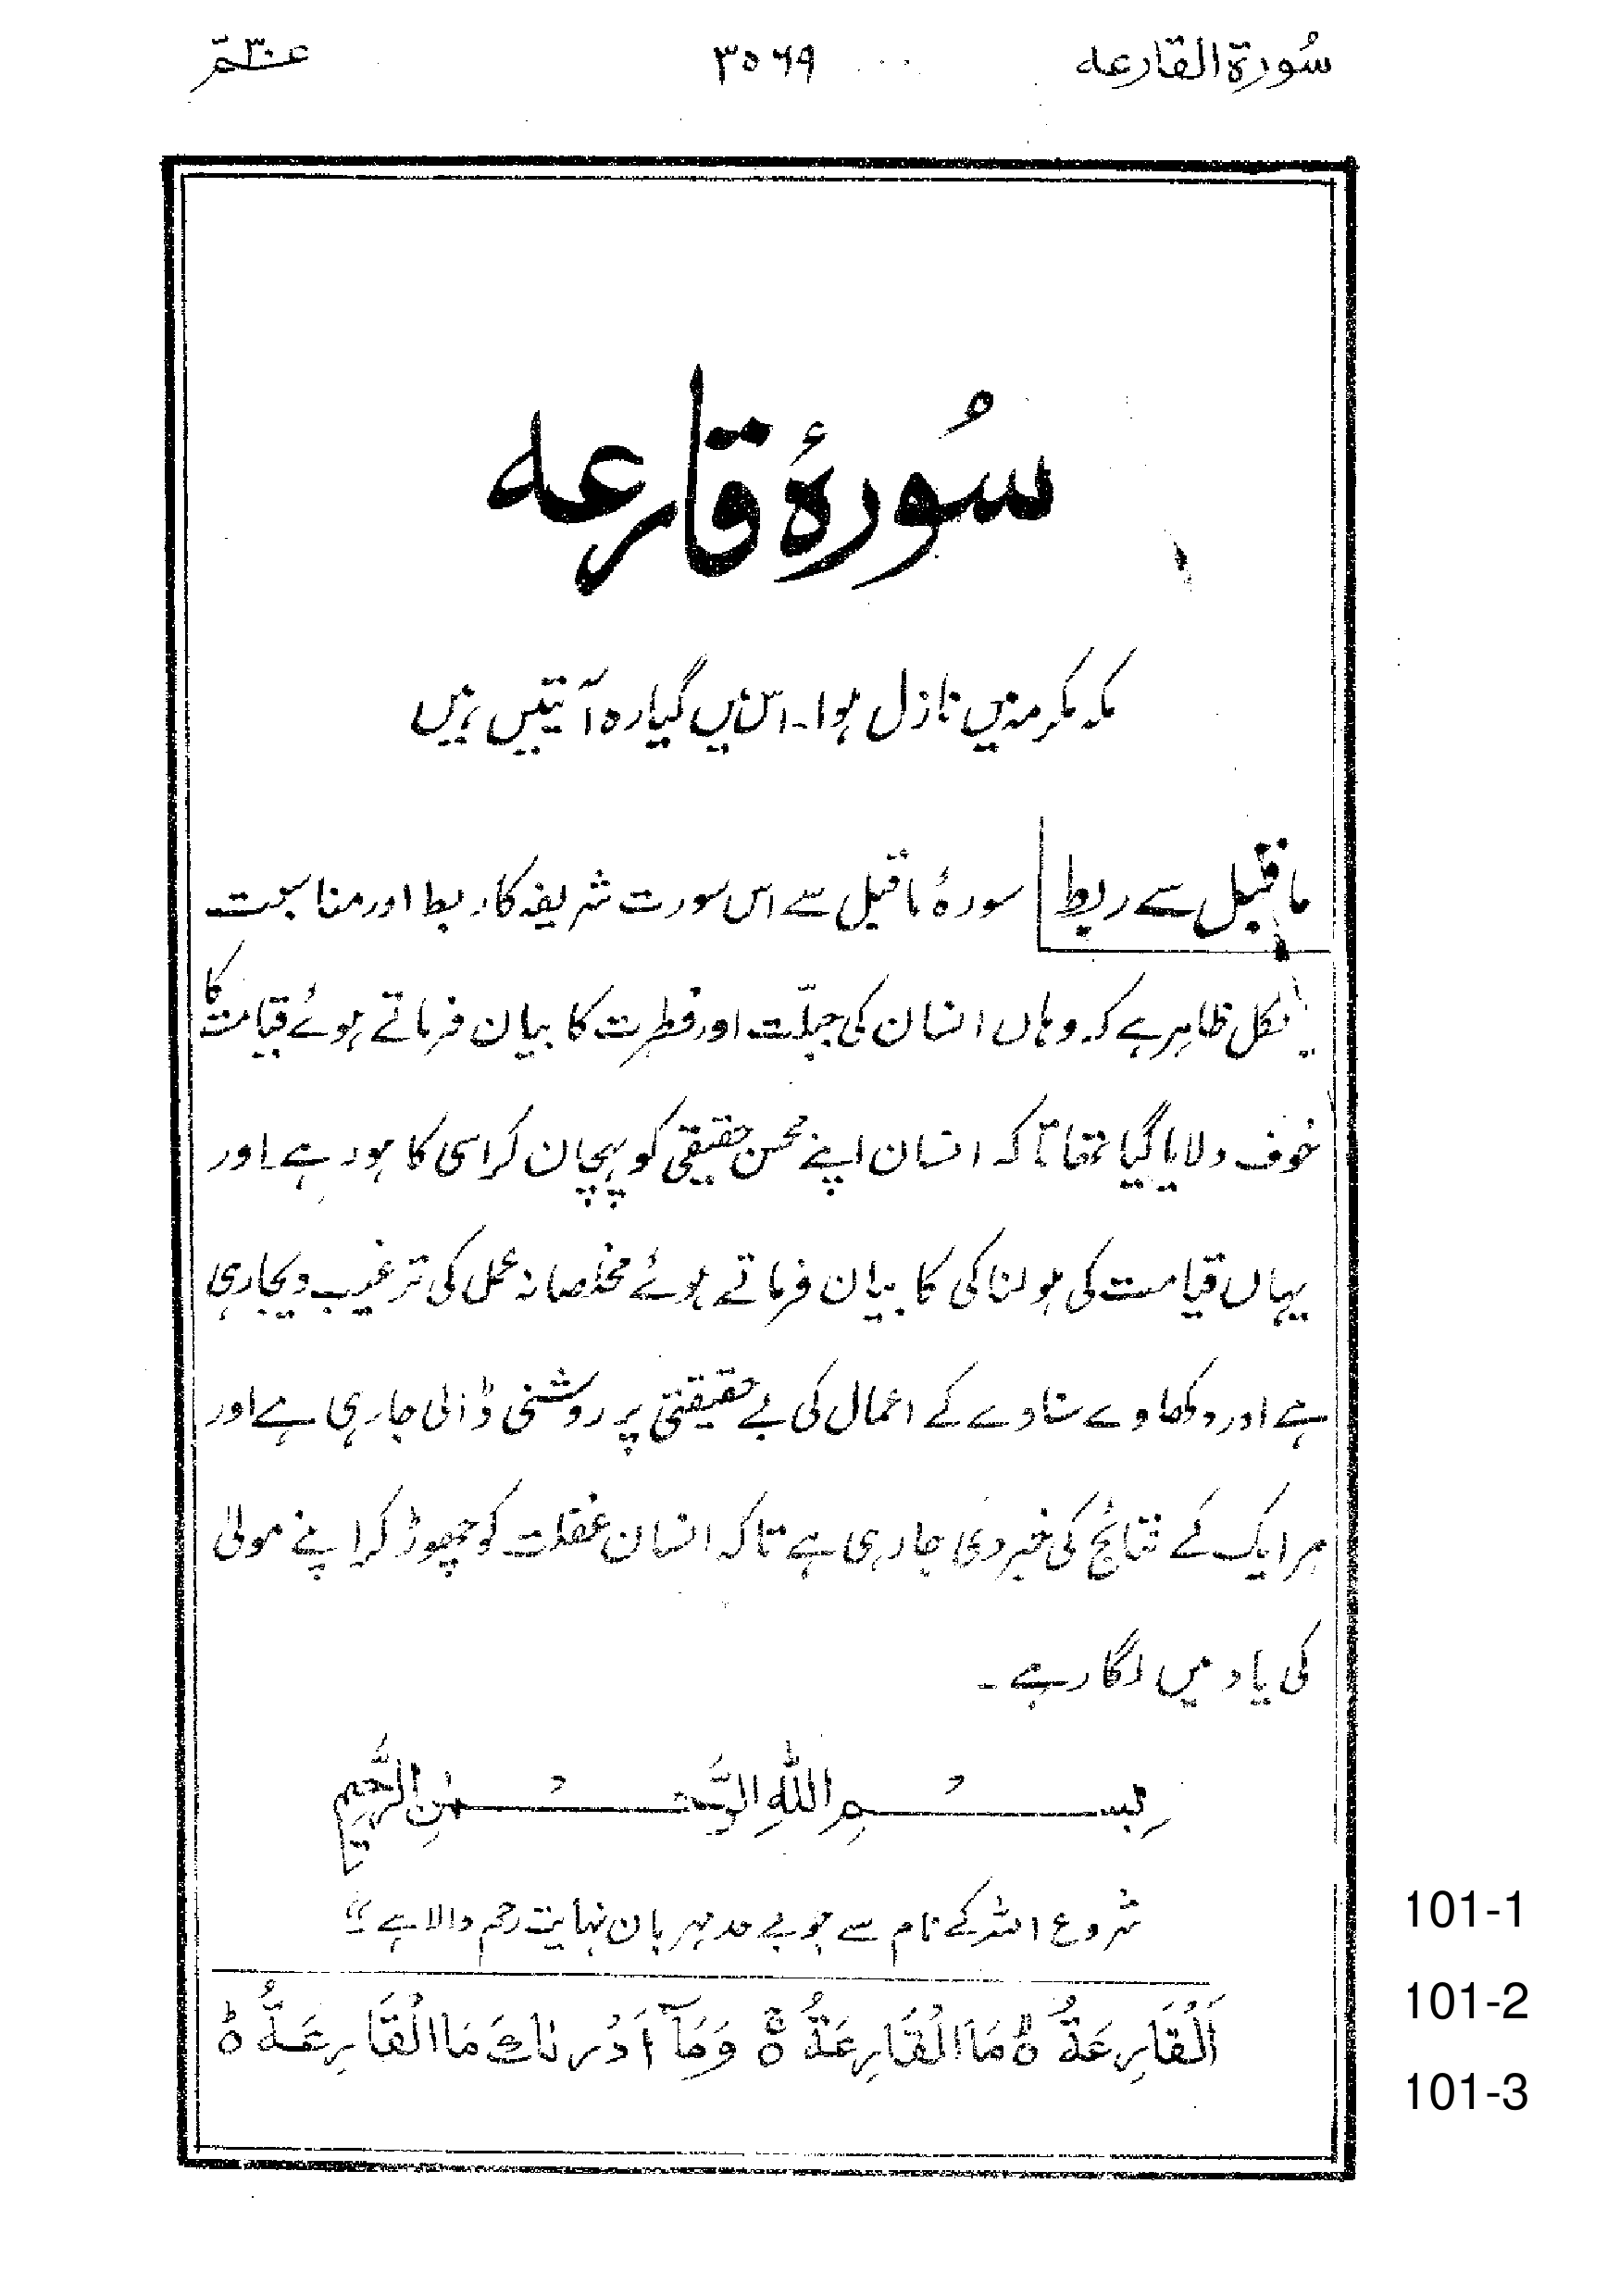 سُورۃ القارعہ ۳۵۶۹ عـمّ ۳۰
سُورۂ قارعہ
مکہ مکرمہ میں نازل ہوا۔ اس میں گیارہ آیتیں ہیں
ماقبل سے ربط سورۂ ماقبل سے اس سورت شریفہ کا ربط اور مناسبت
بالکل ظاہر ہے کہ وہاں انسان کی جبلّت اور فطرت کا بیان فرماتے ہوئے قیامت کا
خوف دلایا گیا تھا تاکہ انسان اپنے محسن حقیقی کو پہچان کر اسی کا ہو رہے۔ اور
یہاں قیامت کی ہولناکی کا بیان فرماتے ہوئے مخلصانہ عمل کی ترغیب دیجارہی
ہے اور دکھاوے سناوے کے اعمال کی بے حقیقتی پر روشنی ڈالی جارہی ہے اور
ہر ایک کے نتائج کی خبر دی جارہی ہے تاکہ انسان غفلت کو چھوڑ کر اپنے مولیٰ
کی یاد میں لگا رہے ۔
بِسْمِ اللّٰهِ الرَّحْمٰنِ الرَّحِيْمِ
شروع اللہ کے نام سے جو بے حد مہربان نہایت رحم والا ہے ؕ
101-1
101-2
اَلْقَارِعَةُ ۙ مَا الْقَارِعَةُ ۚ وَمَآ اَدْرٰىكَ مَا الْقَارِعَةُ ؕ
101-3